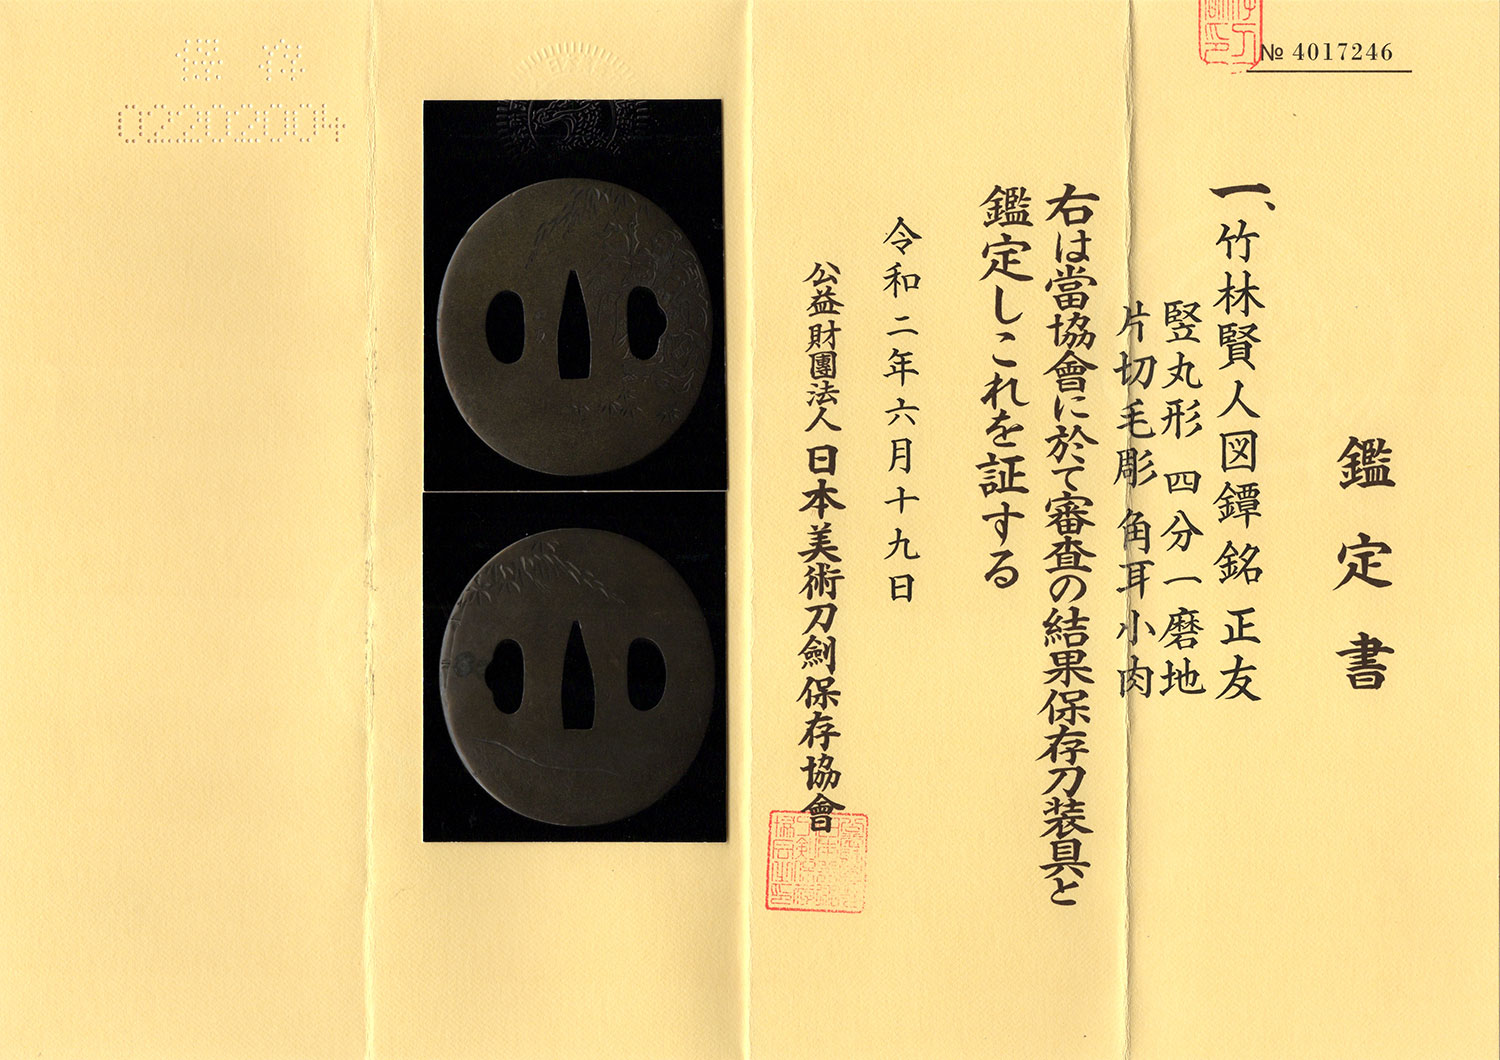 № 4017246
鑑定書
一、竹林賢人図鐔 銘 正友
竪丸形 四分一磨地
片切毛彫 角耳小肉
右は當協會に於て審査の結果保存刀装具と
鑑定しこれを証する
令和二年六月十九日
公益財團法人 日本美術刀剣保存協會
保存
02202004